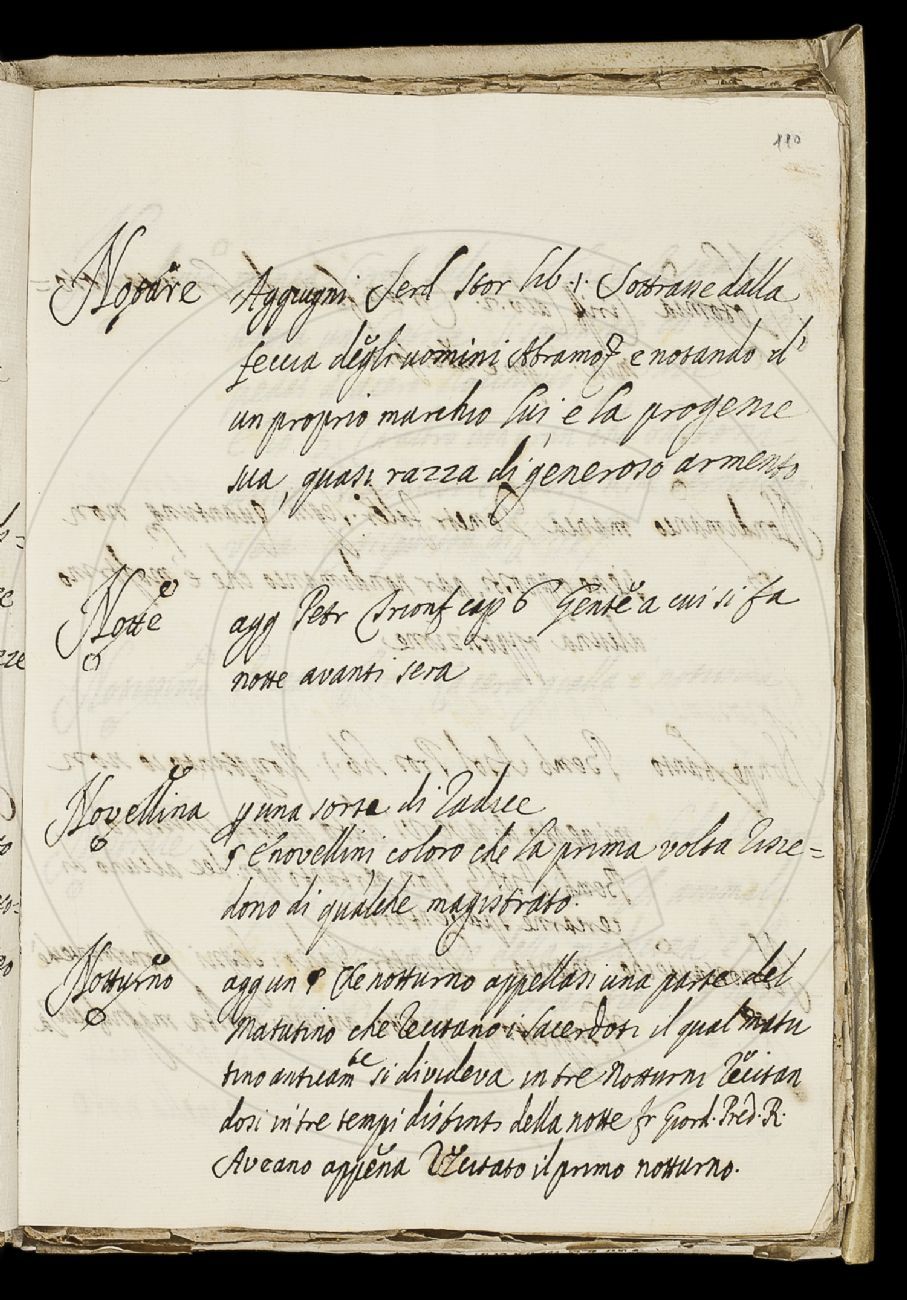 110
Notare Aggiugni Serd Stor lib. 1. Sottrasse dalla
feccia degli uomini Abramo e notando d'
un proprio marchio lui, e la progenie
sua, quasi razza di generoso armento
Notte agg Petr Trionf cap 6 Gente a cui si fa
notte avanti sera
Novellina una sorta di Radice
E novellini coloro che la prima volta risie=
dono di qualche magistrato.
Notturno aggiun Che notturno appellasi una parte del
Matutino che Recitano i Sacerdoti il qual matu
tino anticamte si divideva in tre Notturni Recitan
dosi in tre tempi distinti della notte fr Giord. Pred. R.
Aveano appena Recitato il primo notturno.